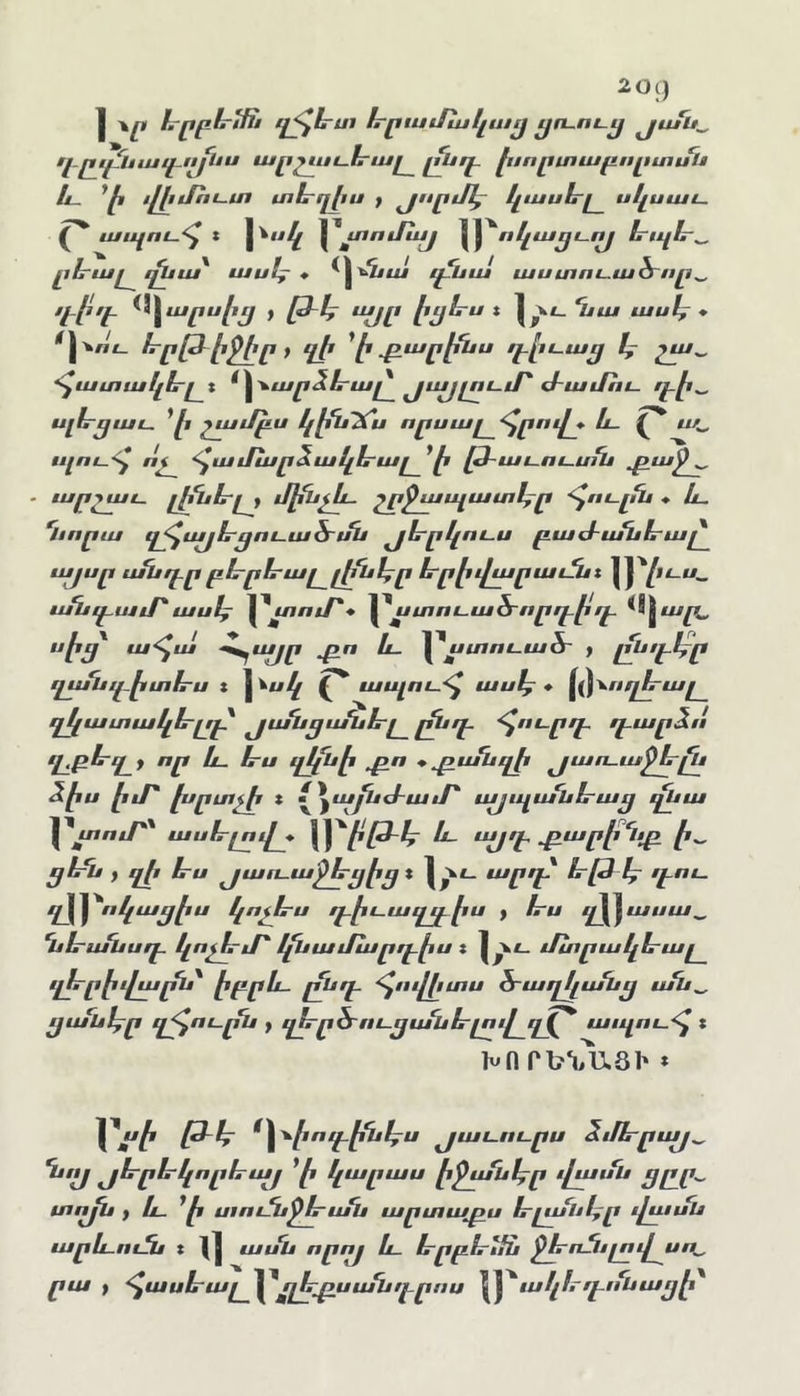 Իր երբեմն զհետ երամակաց ցռուց յան֊
արշաւեալ ընդ խորտաբորտսն
և ՚ի վիմուտ տեղիս , յորմէ կասել սկսաւ
Շապուհ ։ Իսկ Ատոմայ Մոկացւոյ եպե֊
րեալ զնա՝ ասէ . Գնա գնա աստուածոր֊
դիդ Պարսից , թէ այր իցես ։ Եւ նա ասէ .
Դու երթիջիր , զի ՚ի քարինս դիւաց է շա֊
հատակել ։ Դարձեալ յայլում ժամու դի֊
պեցաւ ՚ի շամբս կինճս որսալ հրով . և Շա֊
պուհ ոչ համարձակեալ ՚ի թաւուտն քաջ֊
արշաւ լինել , մինչև շրջապատէր հուրն . և
նորա զհայեցուածսն յերկուս բաժանեալ՝
այսր անդր բերեալ լինէր երիվարաւն ։ Միւս֊
անգամ ասէ Ատոմ . Աստուածորդիդ Պար֊
սից՝ ահա Հայր քո և Աստուած , ընդէր
զանգիտես ։ Իսկ Շապուհ ասէ . Թողեալ
զկատակելդ՝ յանցանել ընդ հուրդ դարձո
զքեզ , որ և ես զկնի քո . քանզի յառաջելն
ձիս իմ խրտչի ։ Յայնժամ այպանեաց զնա
Ատոմ՝ ասելով . Միթէ և այդ քարինք ի֊
ցեն , զի ես յառաջեցից ։ Եւ արդ՝ եթէ դու
զՄոկացիս կոչես դիւազգիս , ես զՍասա֊
նեանսդ կոչեմ կնամարդիս ։ Եւ մտրակեալ
զերիվարն՝ իբրև ընդ հովիտս ծաղկանց ան֊
ցանէր զհուրն , զերծուցանելով զՇապուհ ։
ԽՈՐԵՆԱՑԻ ։
Ասի թէ Դիոգինէս յաւուրս ձմերայ֊
նոյ յերեկորեայ ՚ի կարաս իջանէր վասն ցըր֊
տոյն , և ՚ի տունջեան արտաքս ելանէր վասն
արևուն ։ Վասն որոյ և երբեմն ջեռնլով սո֊
րա , հասեալ Աղեքսանդրոս Մակեդոնացի՝
209